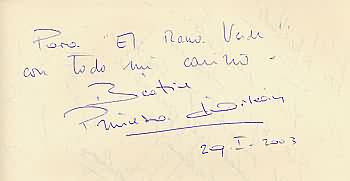 Para "El Rana Verde"
con todo mi cariño.
Beatriz
Princesa de Orleáns
29. I. 2003